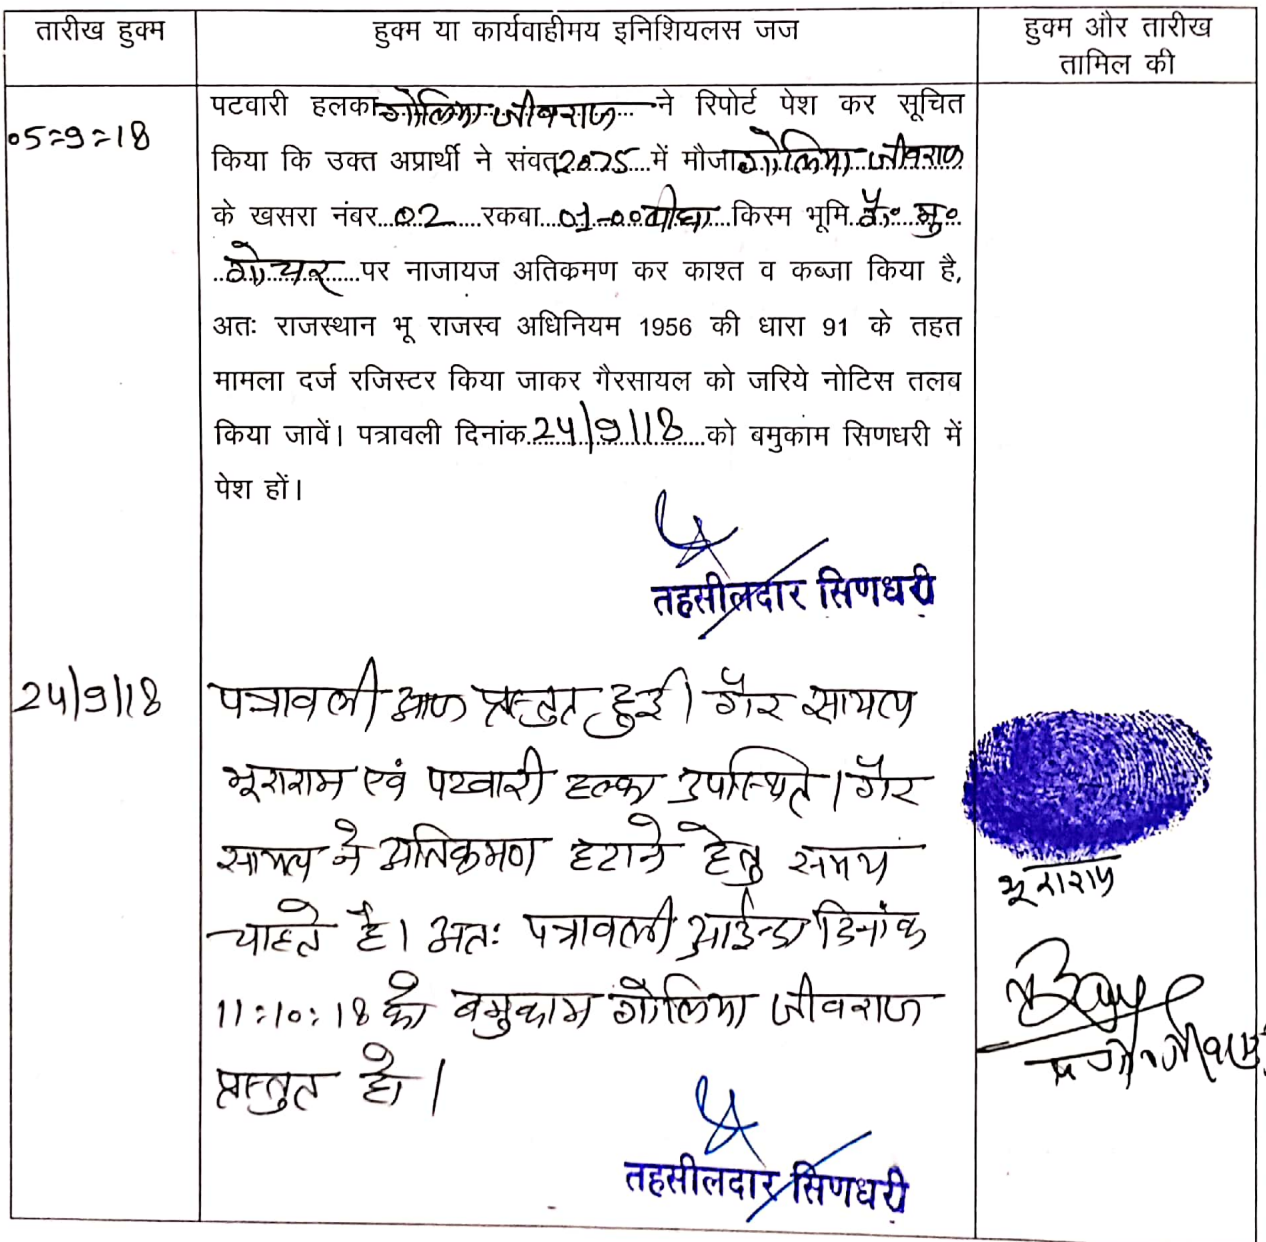 तारीख हुक्म
हुक्म या कार्यवाहीमय इनिशियलस जज
हुक्म और तारीख
तामिल की
05=9=18
पटवारी हलका गोलिया जीवराज ने रिपोर्ट पेश कर सूचित
किया कि उक्त अप्रार्थी ने संवत 2075 में मौजा गोलिया जीवराज
के खसरा नंबर 02 रकबा 01-00 बीघा किस्म भूमि गै० मु०
गोचर पर नाजायज अतिकमण कर काश्त व कब्जा किया है,
अतः राजस्थान भू राजस्व अधिनियम 1956 की धारा 91 के तहत
मामला दर्ज रजिस्टर किया जाकर गैरसायल को जरिये नोटिस तलब
किया जावें। पत्रावली दिनांक 24/9/18 को बमुकाम सिणधरी में
पेश हों।
तहसीलदार सिणधरी
24/9/18
पत्रावली आज प्रस्तुत हुई। गैर सायल
भूराराम एवं पटवारी हल्का उपस्थित। गैर
सायल ने अतिक्रमण हटाने हेतु समय
चाहते है। अतः पत्रावली आईन्दा दिनांक
11:10:18 को बमुकाम गोलिया जीवराज
प्रस्तुत हो।
भूराराम
तहसीलदार सिणधरी